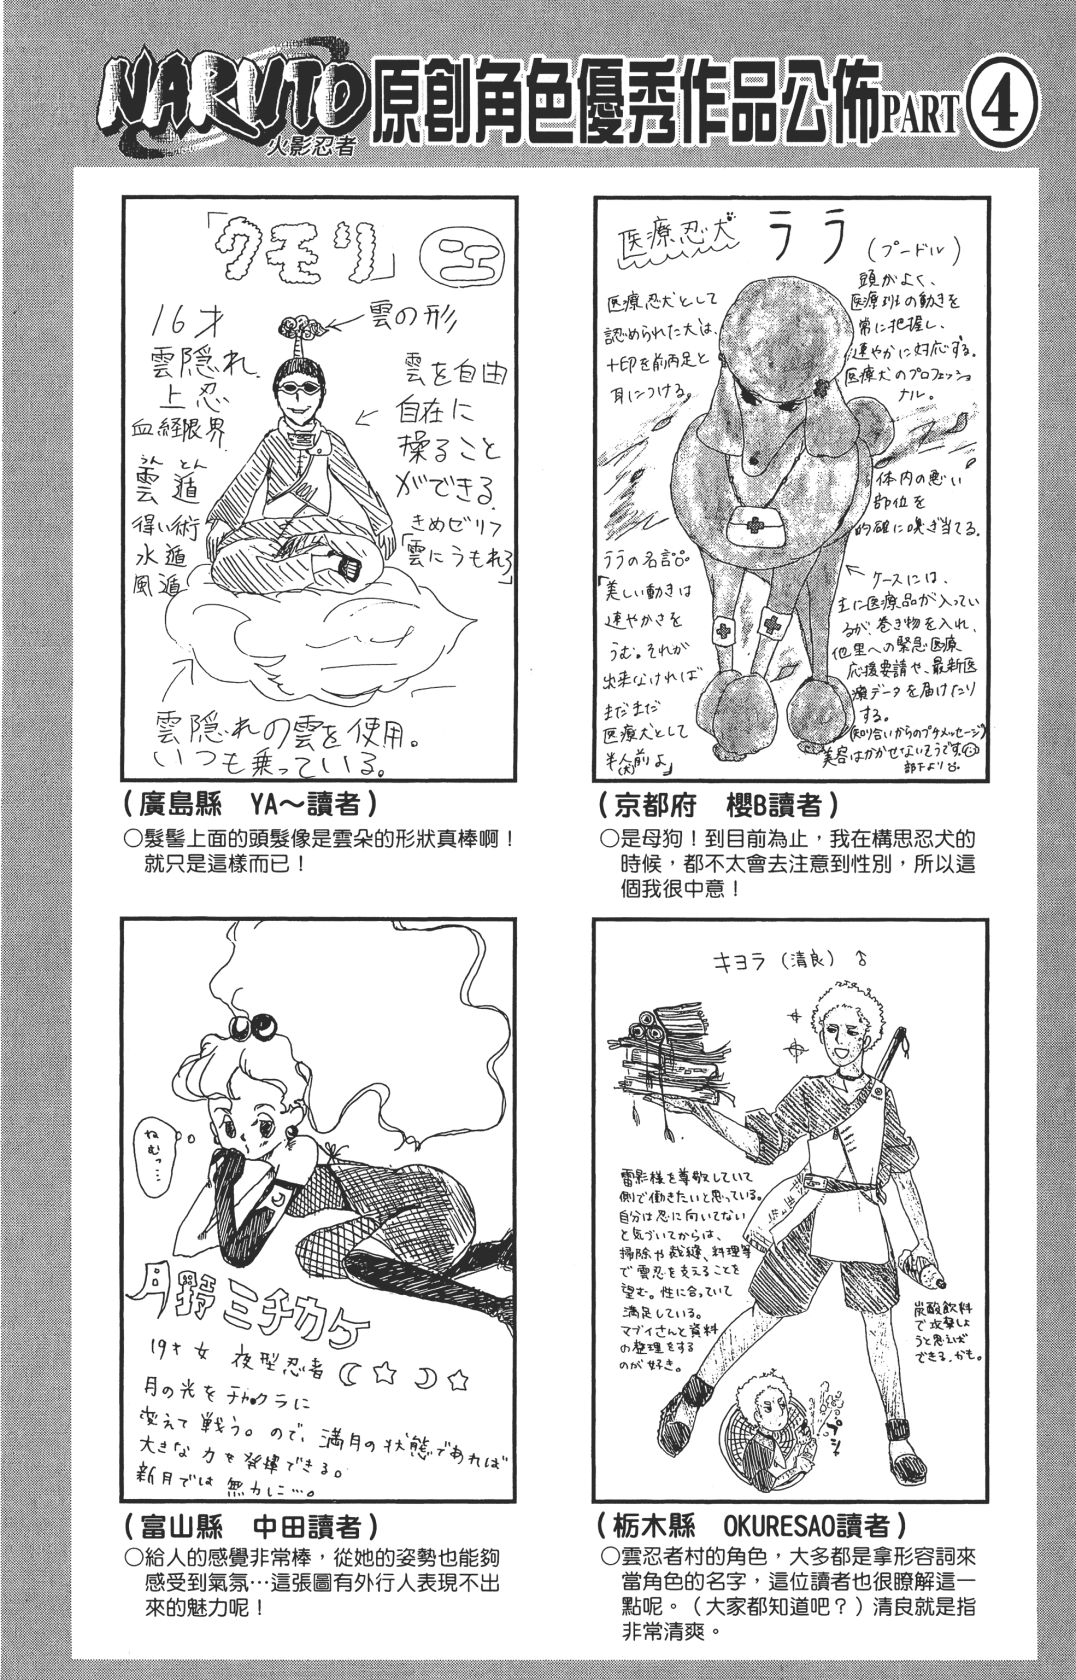 NARUTO
火影忍者
原創角色優秀作品公佈PART4
「クモリ」
16才
雲隠れ
上忍
血経限界
雲遁
うん とん
得い術
水遁
風遁
雲の形
雲を自由
自在に
操ること
ができる
きめゼリフ
「雲にうもれろ」
雲隠れの雲を使用。
いつも乗っている。
(廣島縣 YA～讀者)
○髮髻上面的頭髮像是雲朵的形狀真棒啊！
就只是這樣而已！
医療忍犬 ララ
(プードル)
医療忍犬として
認められた犬は、
十印を前両足と
耳につける。
頭がよく、
医療班の動きを
常に把握し、
速やかに対応する。
医療犬のプロフェッショ
ナル。
体内の悪い
部位を
的確に嗅ぎ当てる。
ララの名言
「美しい動きは
速やかさを
うむ。それが
出来なければ
まだまだ
医療犬として
半人前よ」
(犬)
ケースには、
主に医療品が入ってい
るが、巻き物を入れ、
他里への緊急医療
応援要請や、最新医
療データを届けたり
する。
(知り合いからのプチメッセージ)
美容はかかせないそうです。
部下より
(京都府 櫻B讀者)
○是母狗！到目前為止，我在構思忍犬的
時候，都不太會去注意到性別，所以這
個我很中意！
ねむっ…
月野ミチカケ
19才 女 夜型忍者
月の光をチャクラに
変えて戦う。ので、満月の状態であれば
大きな力を発揮できる。
新月では無力に…。
(富山縣 中田讀者)
○給人的感覺非常棒，從她的姿勢也能夠
感受到氣氛…這張圖有外行人表現不出
來的魅力呢！
キヨラ(清良)♂
雷影様を尊敬していて
側で働きたいと思っている。
自分は忍に向いてない
と気づいてからは、
掃除や裁縫、料理等
で雲忍を支えることを
望む。性に合っていて
満足している。
マブイさんと資料
の整理をする
のが好き。
炭酸飲料
で攻撃しよ
うと思えば
できる。かも。
プシャ
(栃木縣 OKURESAO讀者)
○雲忍者村的角色，大多都是拿形容詞來
當角色的名字，這位讀者也很瞭解這一
點呢。（大家都知道吧？）清良就是指
非常清爽。